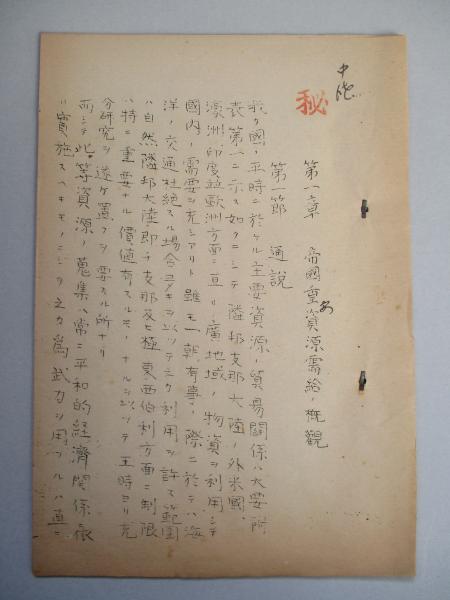 秘
第一章 帝國重要資源需給ノ概觀
第一節 通説
我カ國ノ平時ニ於ケル主要資源ノ貿易關係ハ大要附
表第一ニ示ス如クニシテ隣邦支那大陸ノ外米國、
濠洲、印度並歐洲方面ニ亘リ廣地域ノ物資ヲ利用シテ
國内ノ需要ヲ充シアリト雖モ一朝有事ノ際ニ於テハ海
洋ノ交通杜絶スル場合多キヲ以ツテ之カ利用ヲ許ス範圍
ハ自然隣邦大陸即チ支那及ヒ極東西伯利方面ニ制限
ハ特ニ重要ナル價値有スルモノナルヲ以ツテ平時ヨリ充
分研究ヲ遂ケ置クヲ要スル所ナリ
而シテ此等資源ノ蒐集ハ常ニ平和的經濟關係ニ依
リ實施スヘキモノニシテ之カ爲武力ヲ用フルハ直ニ